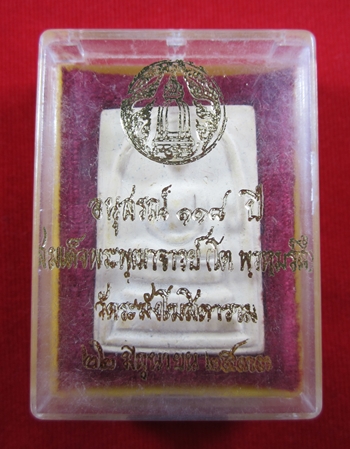 อนุสรณ์ ๑๑๘ ปี
สมเด็จพระพุฒาจารย์ (โต พฺรหฺมรํสี)
วัดระฆังโฆสิตาราม
๒๒ มิถุนายน ๒๕๓๓